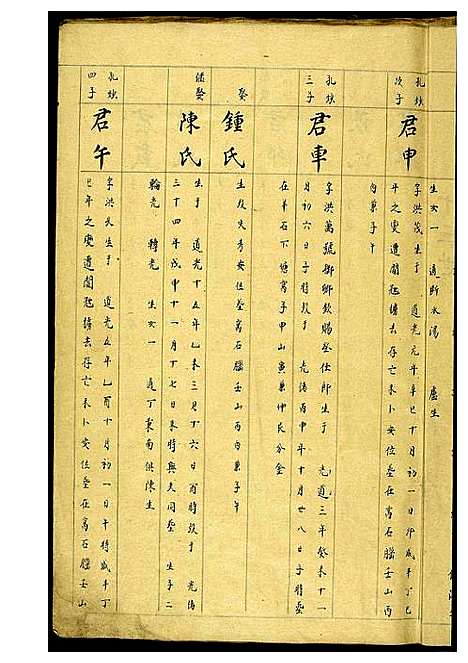 生女一 適 水湯 盧生
孔嫁
次子
君申
字洪茂生于 道光元年辛巳十月初一日卯咸丰丁巳
年之变遭閩匪掳去存亡未卜安位塟在高石腦壬山丙
向兼子午
孔嫁
三子
君車
字洪萬號 欽賜登仕郎生于 光道三年癸未十一
月初六日子時 于 光緒丙申年十月廿八日子時塟
在羊石下塘窩子甲山寅兼 氏分金
娶
鍾氏
生 失考安位塟高石腦壬山丙向兼子午
繼娶
陳氏
生于 道光十五年乙未三月十六日酉時 于 光緒
二十四年戊申十一月十七日未時與夫同塟 生子二
輪光 轉光 生女一 適丁 南 陳生
孔嫁
四子
君午
字洪 生于 道光五年乙酉十月初一日午時咸丰丁
巳年之变遭閩匪掳去存亡未卜安位塟在高石腦壬山